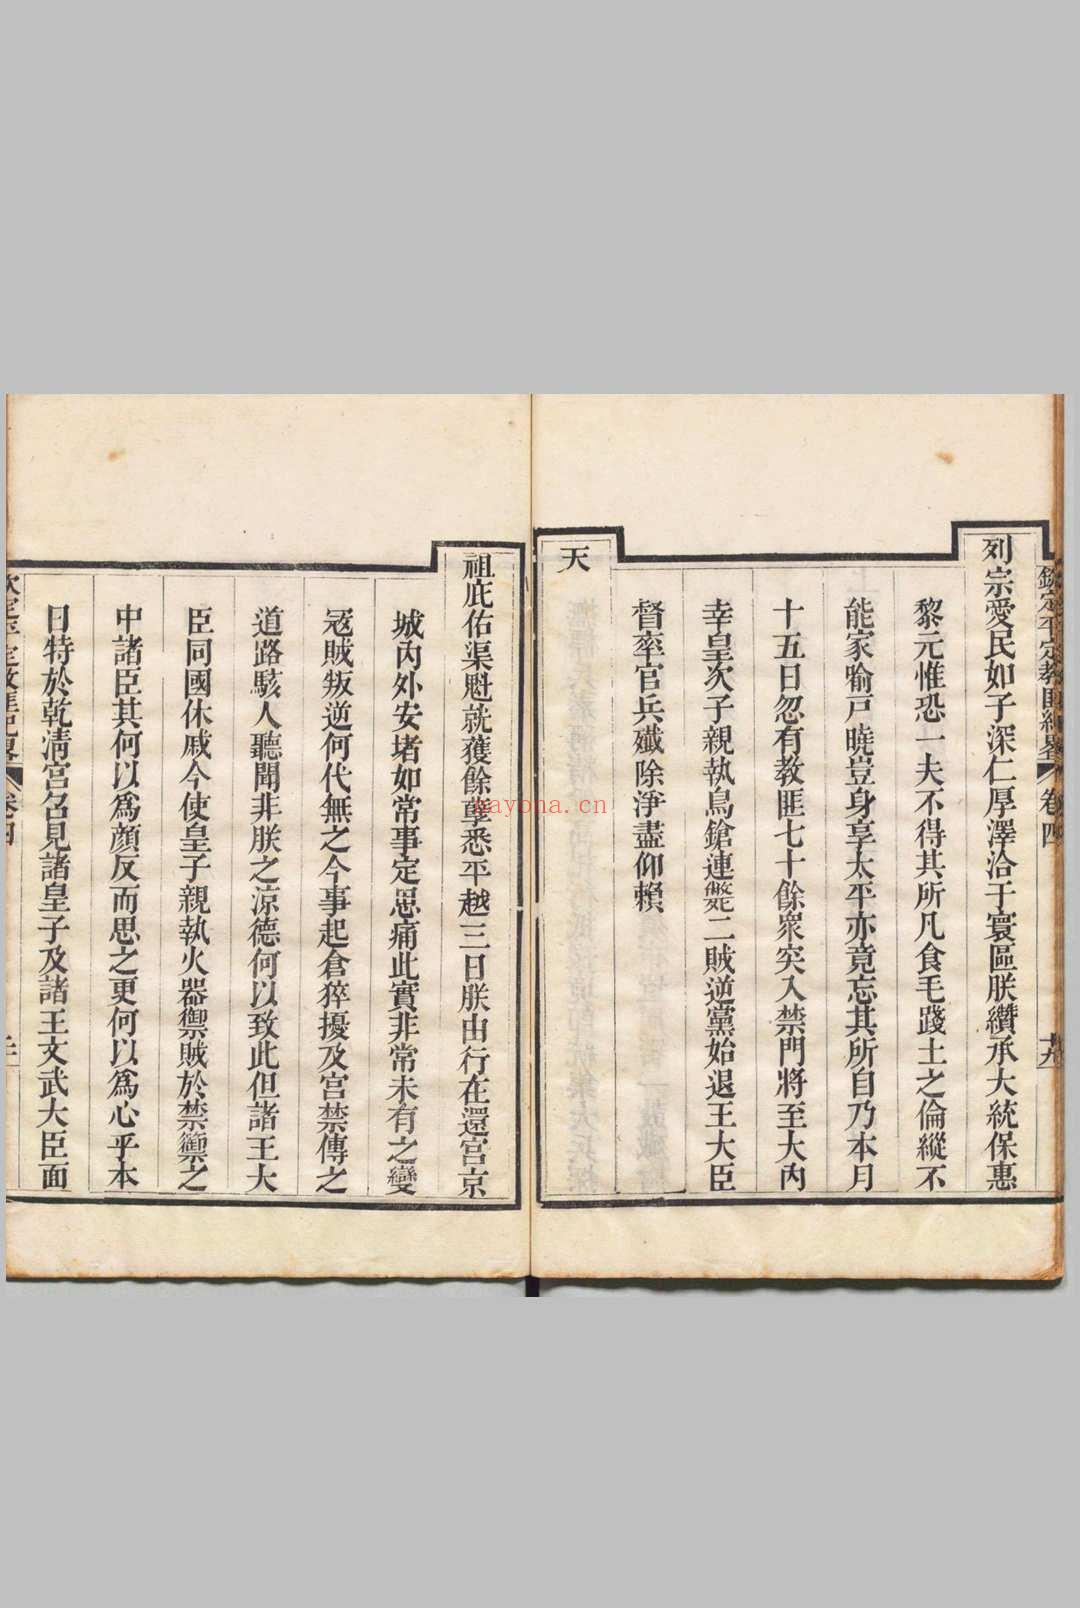 欽定平定教匪紀畧 卷四 十九
列宗愛民如子深仁厚澤洽于寰區朕纘承大統保惠
黎元惟恐一夫不得其所凡食毛踐土之倫縱不
能家喻戶曉豈身享太平亦竟忘其所自乃本月
十五日忽有教匪七十餘衆突入禁門將至大內
幸皇次子親執鳥鎗連斃二賊逆黨始退王大臣
督率官兵殲除淨盡仰賴
天
祖庇佑渠魁就獲餘孽悉平越三日朕由行在還宮京
城內外安堵如常事定思痛此實非常未有之變
寇賊叛逆何代無之今事起倉猝擾及宮禁傳之
道路駭人聽聞非朕之涼德何以致此但諸王大
臣同國休戚今使皇子親執火器禦賊於禁籞之
中諸臣其何以爲顏反而思之更何以爲心乎本
日特於乾清宮召見諸皇子及諸王文武大臣面
欽定平定教匪紀畧 卷四
nayona.cn